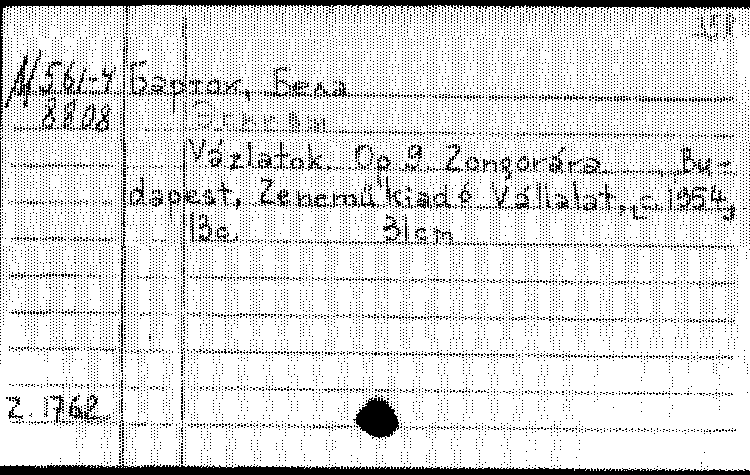 М 561-4 Барток, Бела
8808
Vázlatok. Op 9. Zongorára. , Bu-
dapest, Zeneműkiadó Vállalat, c. 1954,
13 c. 31 cm
Z. 1762